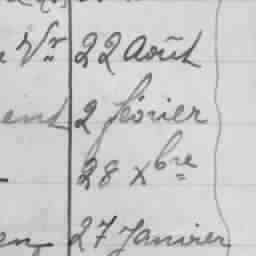 Vr 22 Août
ent 2 février
28 Xbre
27 Janvier